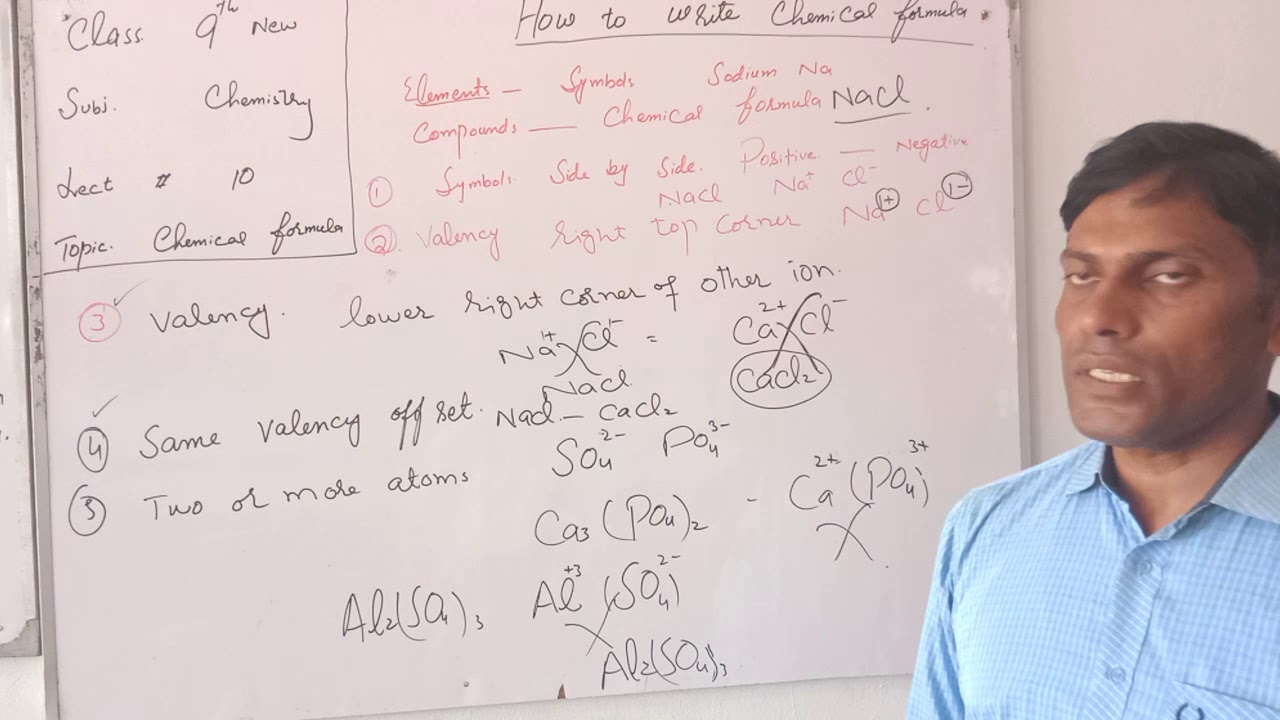 Class 9th New
Subj. Chemistry
Lect # 10
Topic. Chemical formula
How to write Chemical formula.
Elements — Symbols Sodium Na
Compounds — Chemical formula NaCl.
① Symbols Side by Side. Positive — Negative
NaCl Na⁺ Cl⁻
② Valency right top corner Na¹⁺ Cl¹⁻
③ Valency. lower right corner of other ion.
Na¹⁺ Cl⁻ = Ca²⁺ Cl⁻
NaCl CaCl₂
④ Same Valency off set. NaCl – CaCl₂
SO₄²⁻ PO₄³⁻
⑤ Two or more atoms
Ca₃(PO₄)₂ - Ca²⁺ (PO₄)³⁺
Al₂(SO₄)₃ Al⁺³ (SO₄)²⁻
Al₂(SO₄)₃